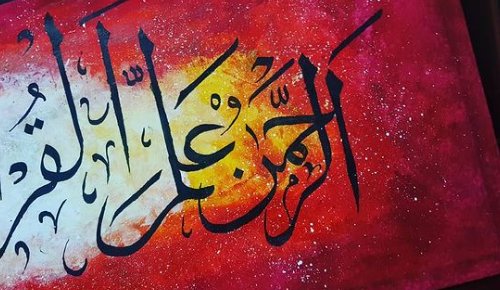 الرحمن علّم القُر